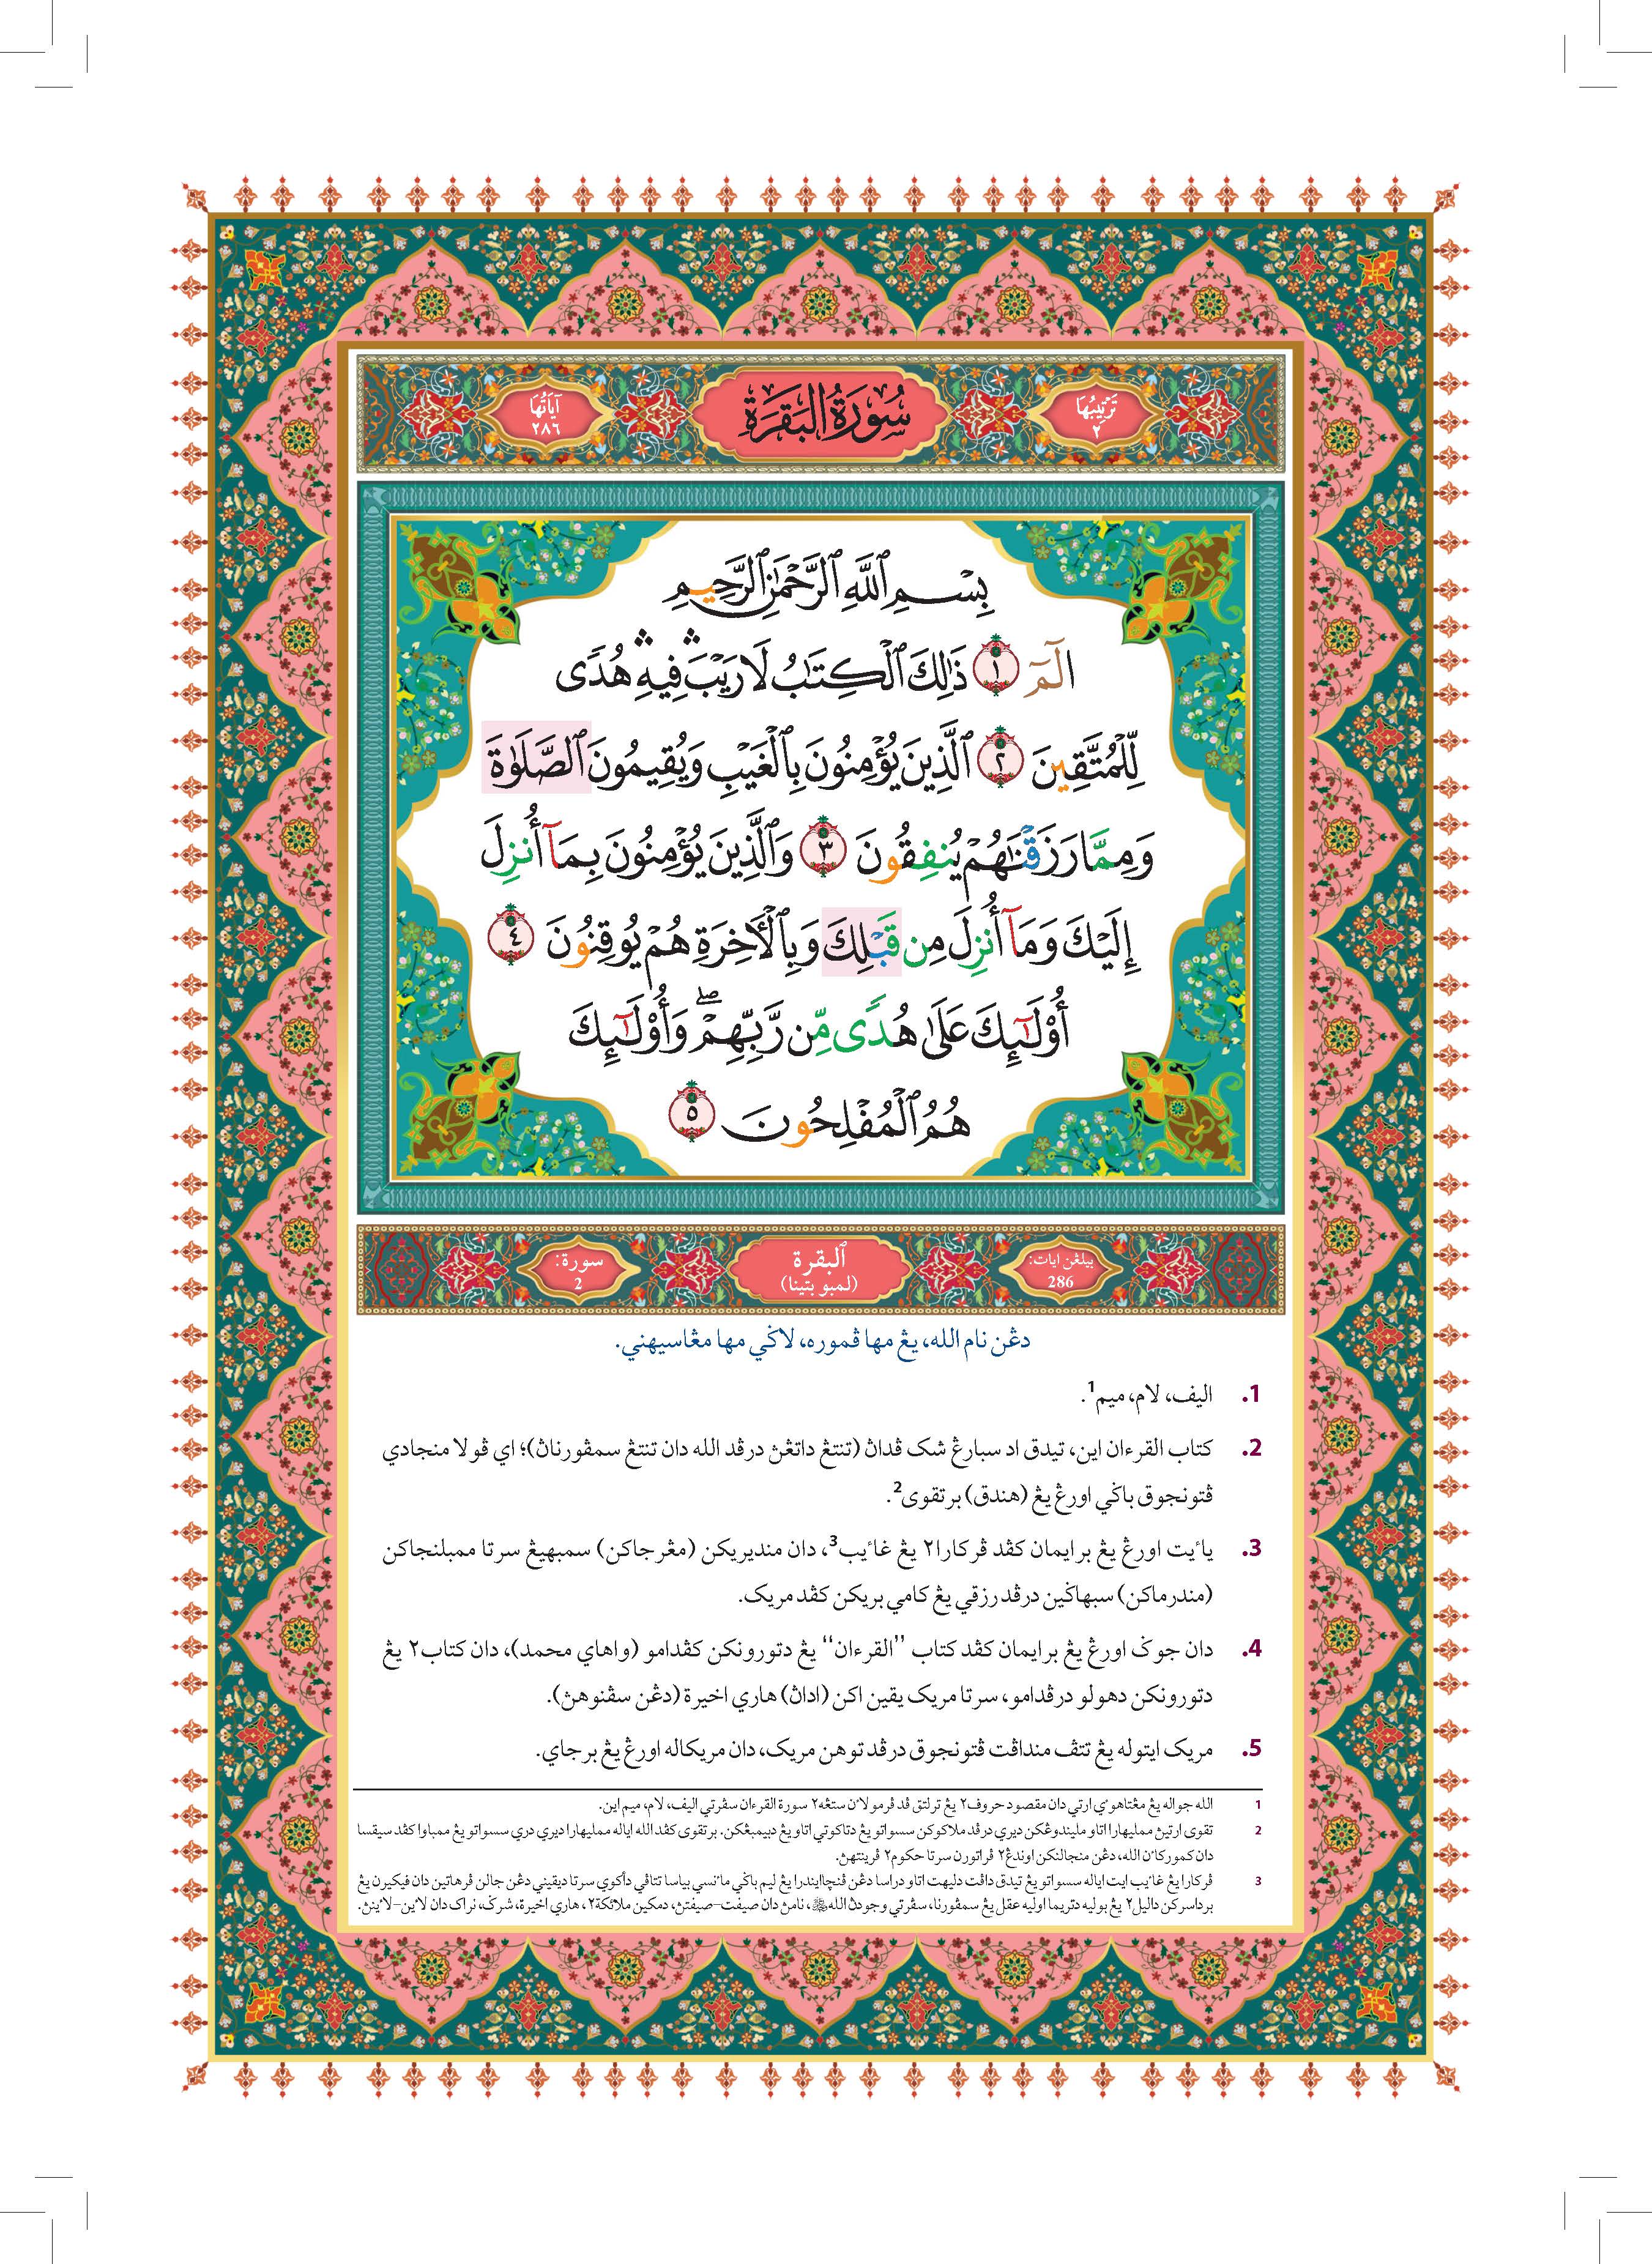 تَرْتِيبُهَا ٢
سُورَةُ الْبَقَرَةِ
آيَاتُهَا ٢٨٦
بِسْمِ ٱللَّهِ ٱلرَّحْمَٰنِ ٱلرَّحِيمِ
الٓمٓ ١ ذَٰلِكَ ٱلْكِتَٰبُ لَا رَيْبَۛ فِيهِۛ هُدًى
لِّلْمُتَّقِينَ ٢ ٱلَّذِينَ يُؤْمِنُونَ بِٱلْغَيْبِ وَيُقِيمُونَ ٱلصَّلَوٰةَ
وَمِمَّا رَزَقْنَٰهُمْ يُنفِقُونَ ٣ وَٱلَّذِينَ يُؤْمِنُونَ بِمَآ أُنزِلَ
إِلَيْكَ وَمَآ أُنزِلَ مِن قَبْلِكَ وَبِٱلْأَخِرَةِ هُمْ يُوقِنُونَ ٤
أُو۟لَٰٓئِكَ عَلَىٰ هُدًى مِّن رَّبِّهِمْۖ وَأُو۟لَٰٓئِكَ
هُمُ ٱلْمُفْلِحُونَ ٥
بيلڠن ايات: 286
ٱلبقرة
(لمبو بتينا)
سورة: 2
دڠن نام الله، يڠ مها ڤموره، لاݢي مها مڠاسيهني.
1. اليف، لام، ميم1.
2. كتاب القرءان اين، تيدق اد سبارڠ شک ڤداڽ (تنتڠ داتڠڽ درڤد الله دان تنتڠ سمڤورناڽ)؛ اي ڤولا منجادي
ڤتونجوق باݢي اورڠ يڠ (هندق) برتقوى2.
3. ياءيت اورڠ يڠ برايمان كڤد ڤركارا٢ يڠ غاءيب3، دان منديريكن (مڠرجاكن) سمبهيڠ سرتا ممبلنجاكن
(مندرماكن) سبهاݢين درڤد رزقي يڠ كامي بريكن كڤد مريک.
4. دان جوݢ اورڠ يڠ برايمان كڤد كتاب ”القرءان“ يڠ دتورونكن كڤدامو (واهاي محمد)، دان كتاب٢ يڠ
دتورونكن دهولو درڤدامو، سرتا مريک يقين اكن (اداڽ) هاري اخيرة (دڠن سڤنوهڽ).
5. مريک ايتوله يڠ تتڤ منداڤت ڤتونجوق درڤد توهن مريک، دان مريكاله اورڠ يڠ برجاي.
1 الله جواله يڠ مڠتاهوءي ارتي دان مقصود حروف٢ يڠ ترلتق ڤد ڤرمولاءن ستڠه٢ سورة القرءان سڤرتي اليف، لام، ميم اين.
2 تقوى ارتيڽ ممليهارا اتاو مليندوڠكن ديري درڤد ملاكوكن سسواتو يڠ دتاكوتي اتاو يڠ دبيمبڠكن. برتقوى كڤد الله اياله ممليهارا ديري دري سسواتو يڠ ممباوا كڤد سيقسا
دان كموركاءن الله، دڠن منجالنكن اوندڠ٢ ڤراتورن سرتا حكوم٢ ڤرينتهڽ.
3 ڤركارا يڠ غاءيب ايت اياله سسواتو يڠ تيدق داڤت دليهت اتاو دراسا دڠن ڤنچاايندرا يڠ ليم باݢي مأنسي بياسا تتاڤي دأكوي سرتا ديقيني دڠن جالن ڤرهاتين دان فيكيرن يڠ
برداسركن داليل٢ يڠ بوليه دتريما اوليه عقل يڠ سمڤورنا، سڤرتي وجودڽ الله ﷻ، نامڽ دان صيفت-صيفتڽ، دمكين ملائكة٢، هاري اخيرة، شرݢ، نراک دان لاءين-لاءينڽ.